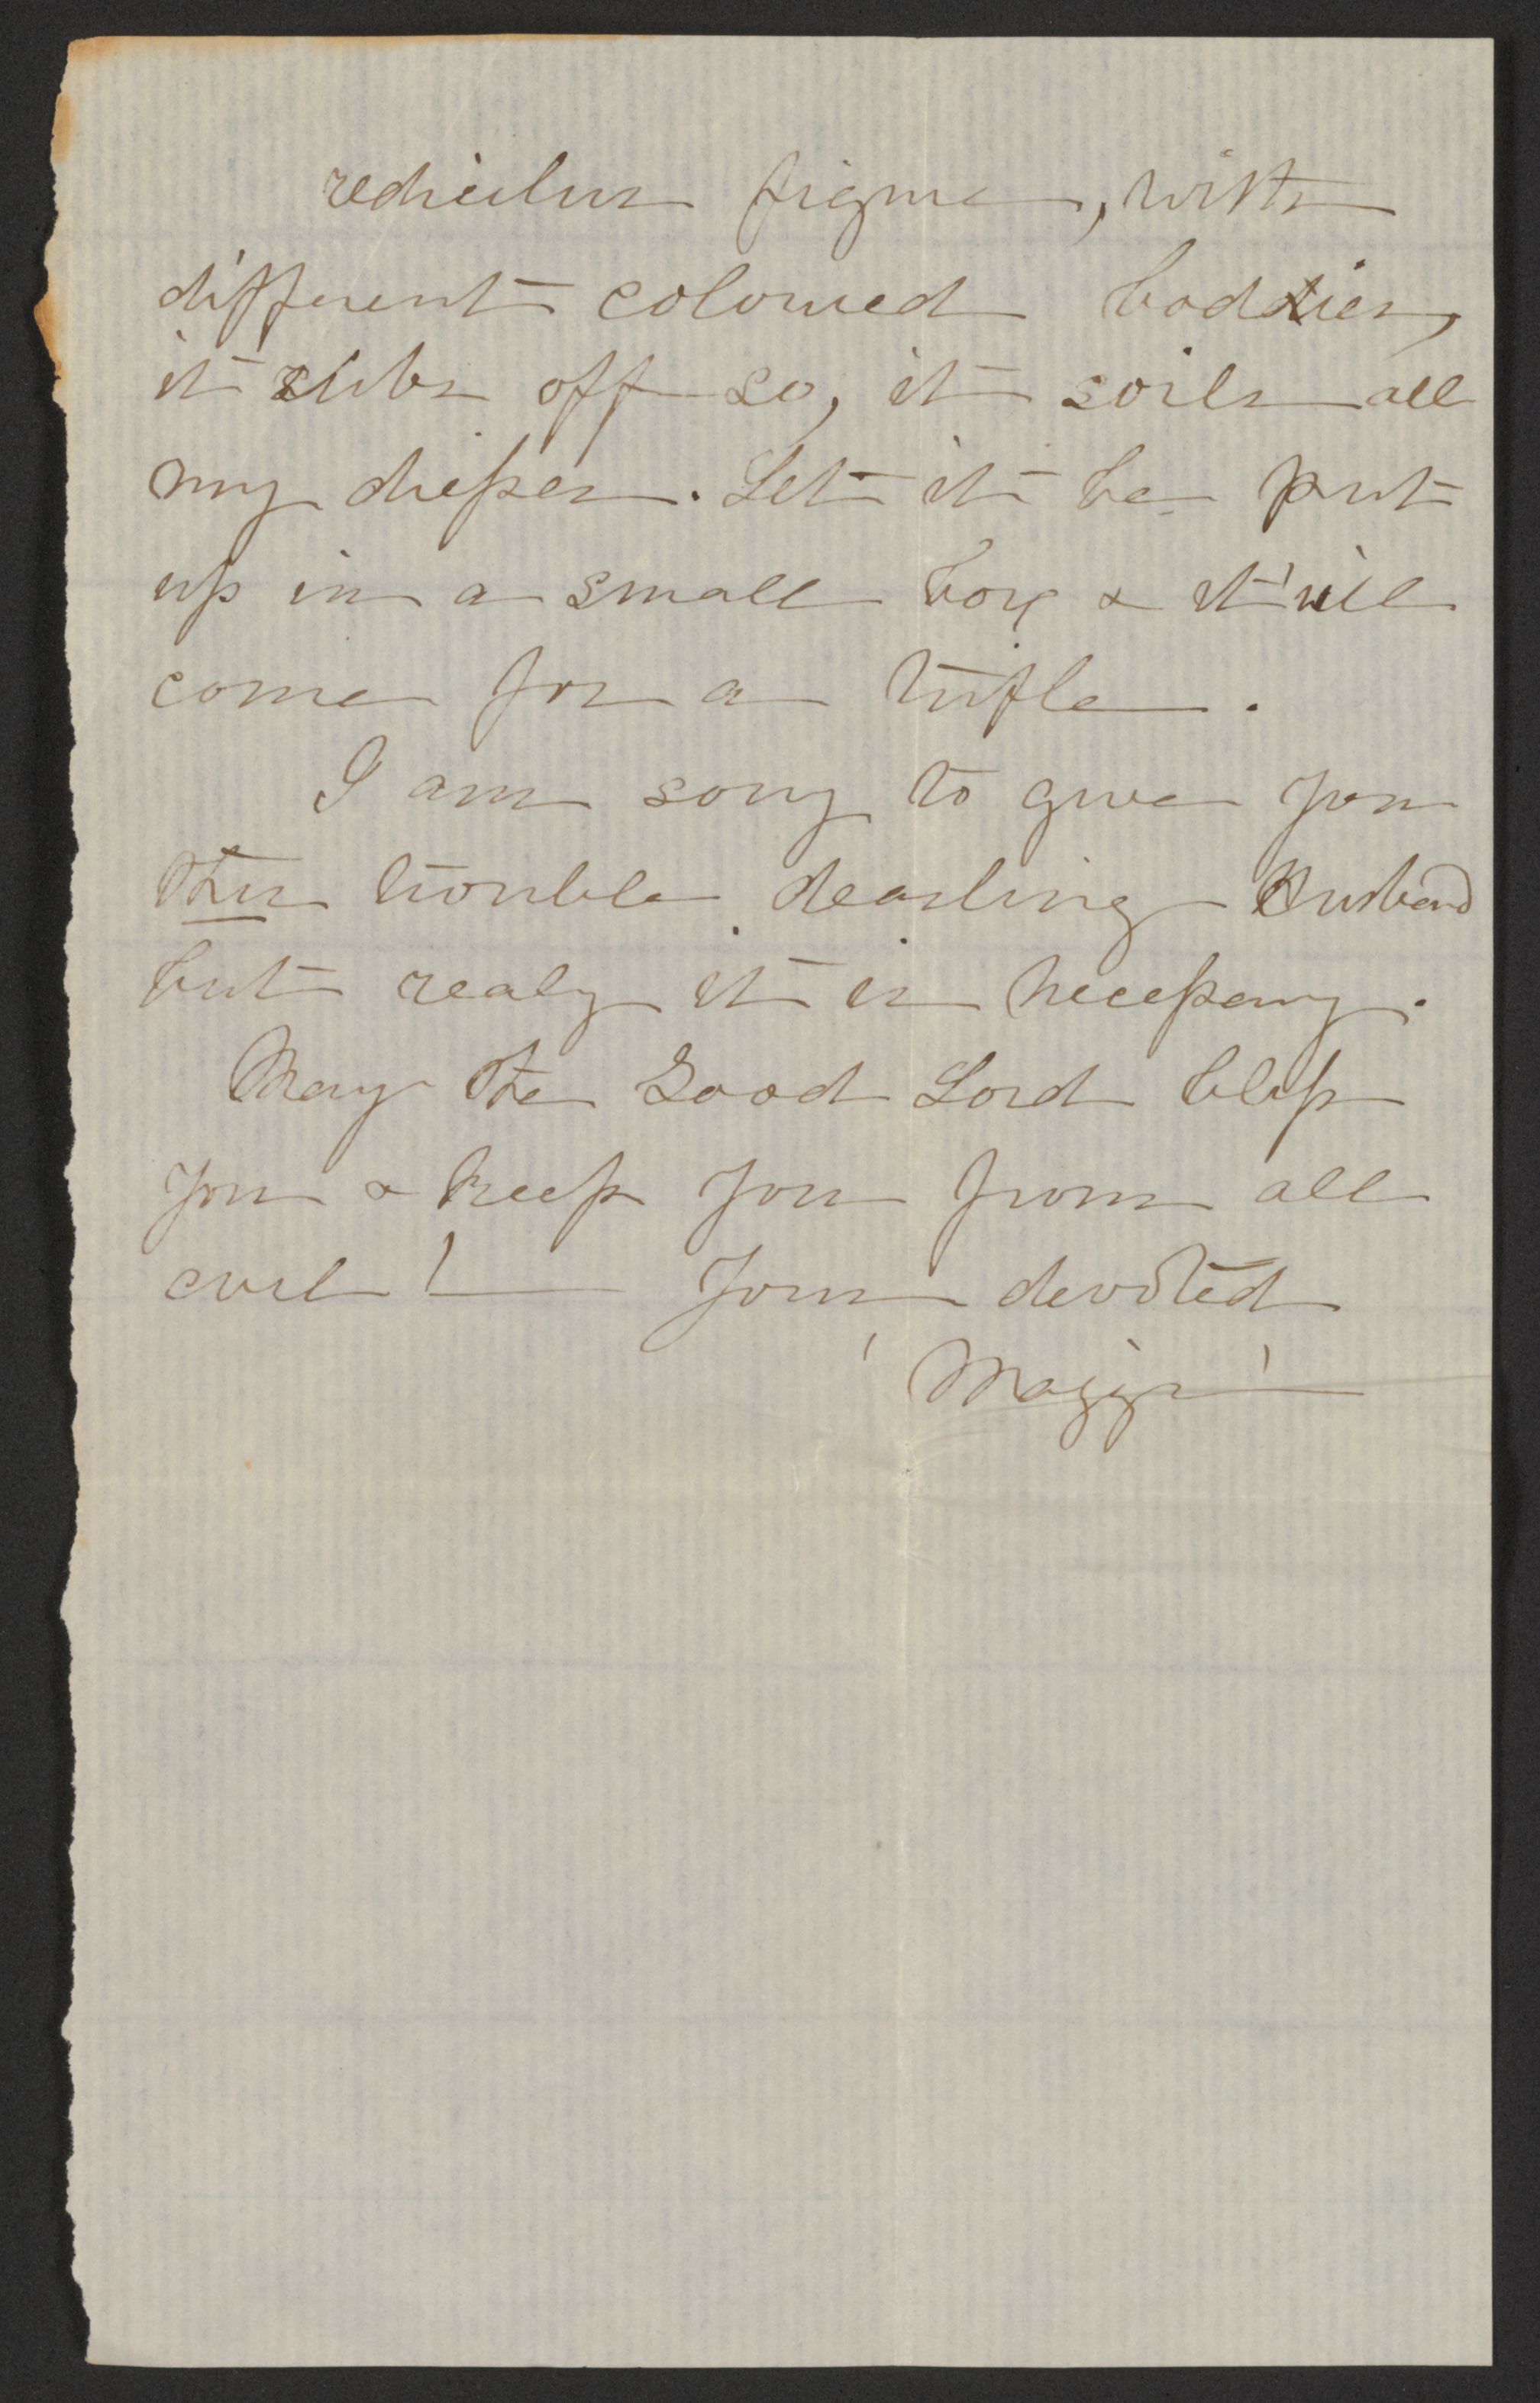 rediculus figure, with
different coloured boddies,
it rubs off so, it soils all
my dresses. Let it be put
up in a small box & it'will
come for a trifle.
I am sorry to give you
this trouble dearling Husband
but realy it is necessary.
May the Good Lord bless
you & keep you from all
evil! — Your devoted
'Maggie'